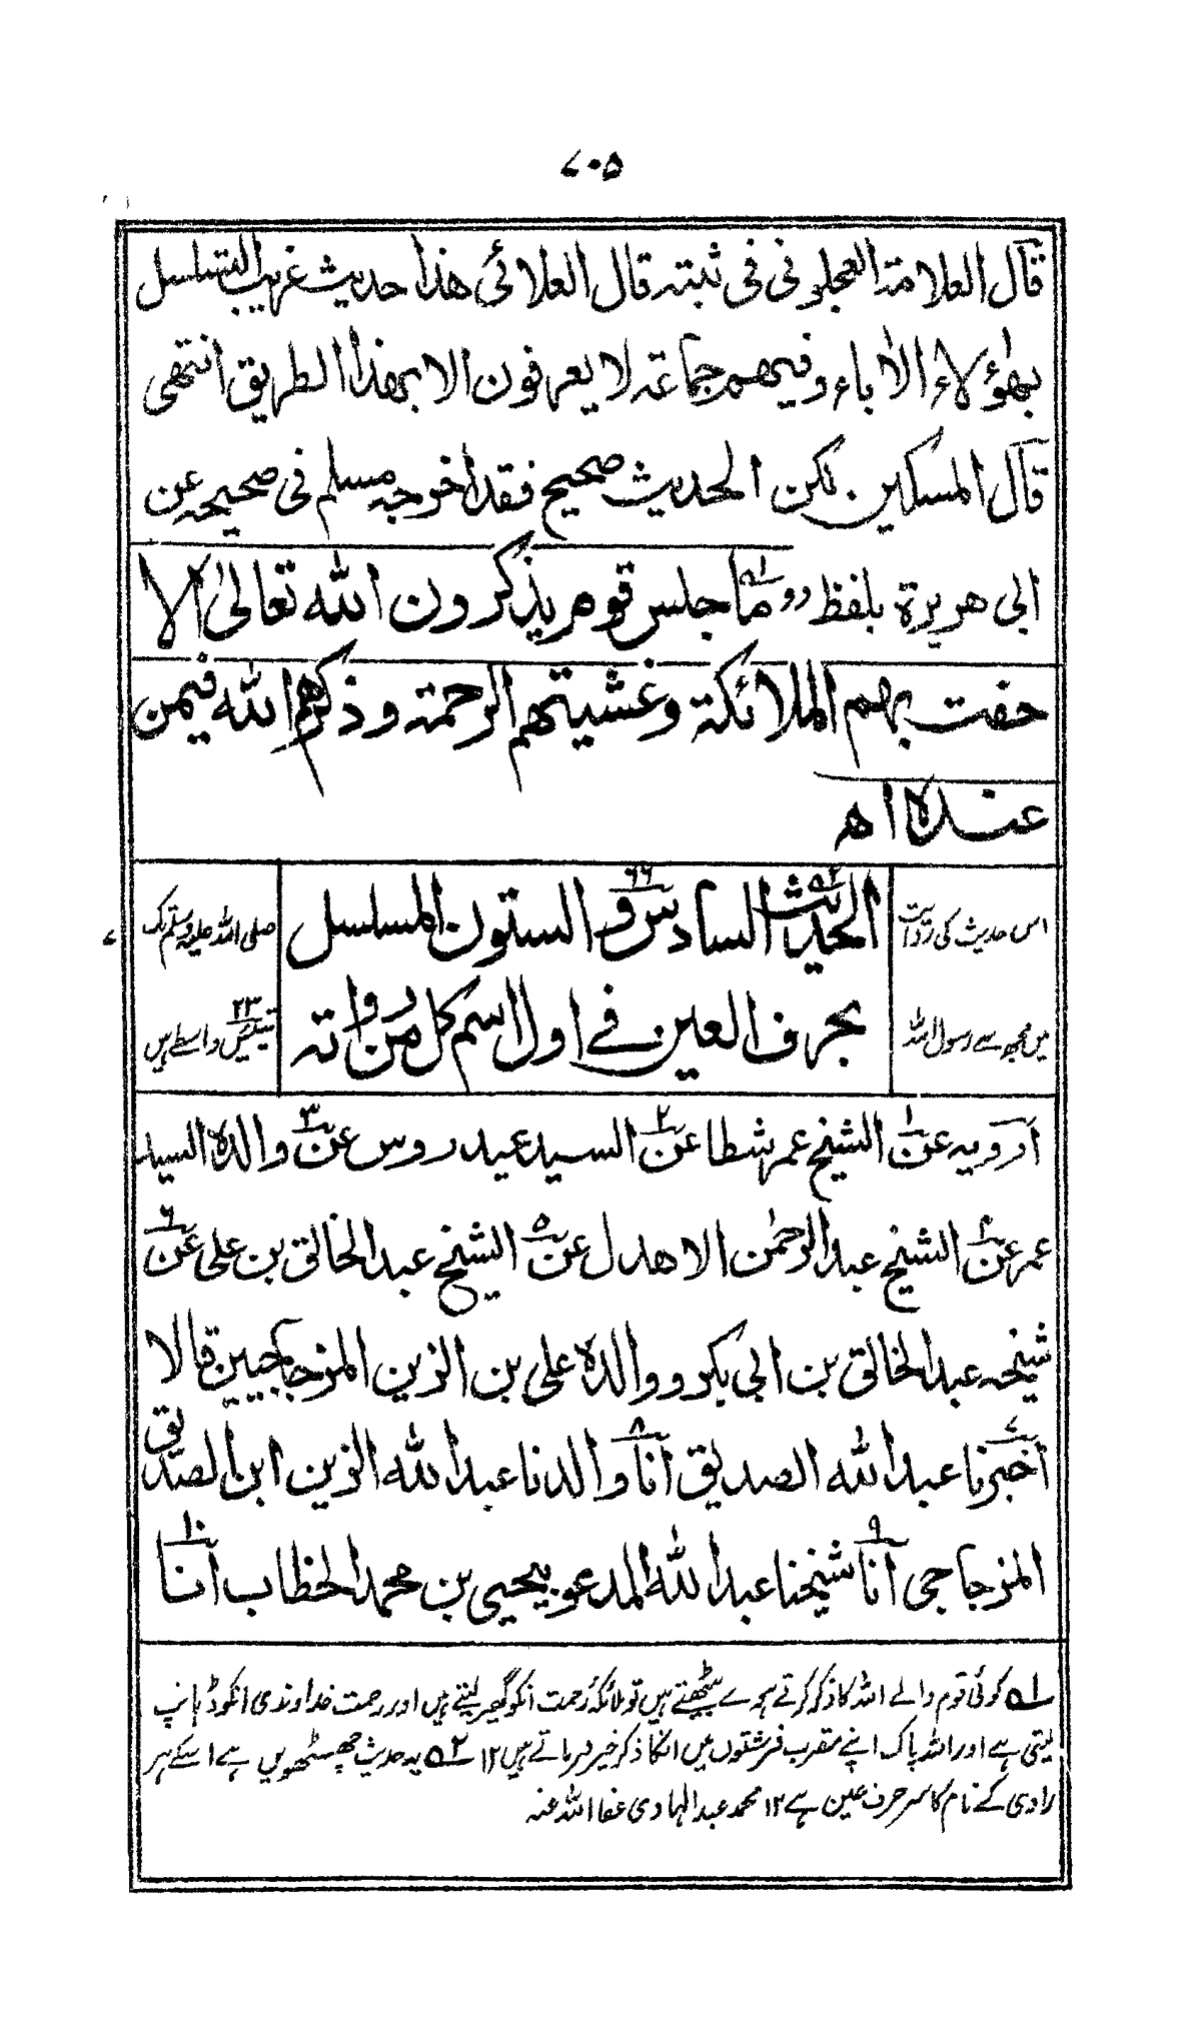 ۷۰۵
قال العلامة العجلوني في ثبته قال العلائي هذا حديث غريب التسلسل
بهؤلاء الاباء وفيهم جماعة لا يعرفون الا بهذا الطريق انتهى
قال المسكين لكن الحديث صحيح فقد اخرجه مسلم في صحيحه عن
ابي هريرة بلفظ ،، ما۱ جلس قوم يذكرون الله تعالى الا
حفت بهم الملائكة وغشيتهم الرحمة وذكرهم الله فيمن
عنده اھ
اس حدیث کی روایت
میں مجھ سے رسول اللہ
الحديث۲ السادس والستون ۶۶ المسلسل
بحرف العين فے اول اسم كل من رواته
صلی اللہ علیہ وسلم تک
تیئیس ۲۳ واسطے ہیں
ارويه عن۱ الشيخ عمر شطا عن۲ السيد عيدروس عن۳ والده السيد
عمر عن۴ الشيخ عبد الرحمٰن الاهدل عن۵ الشيخ عبد الخالق بن علي عن۶
شيخه عبد الخالق بن ابي بكر ووالده علي بن الزين المزجاجيين قالا
اخبرنا۷ عبد الله الصديق انا۸ والدنا عبد الله الزين ابن الصديق
المزجاجي انا۹ شيخنا عبد الله المدعو بيحيى بن محمد الحطاب انا۱۰
۱ے کوئی قوم والے اللہ کا ذکر کرتے ہوے بیٹھتے ہیں تو ملائکۂ رحمت انکو گھیر لیتے ہیں اور رحمت خداوندی انکو ڈھانپ
لیتی ہے اور اللہ پاک اپنے مقرب فرشتوں میں انکا ذکر خیر فرماتے ہیں ۱۲ ۲ے یہ حدیث چھسٹھویں ہے اسکے ہر
راوی کے نام کا سر حرف عین ہے ۱۲ محمد عبد الہادی عفا اللہ عنہ